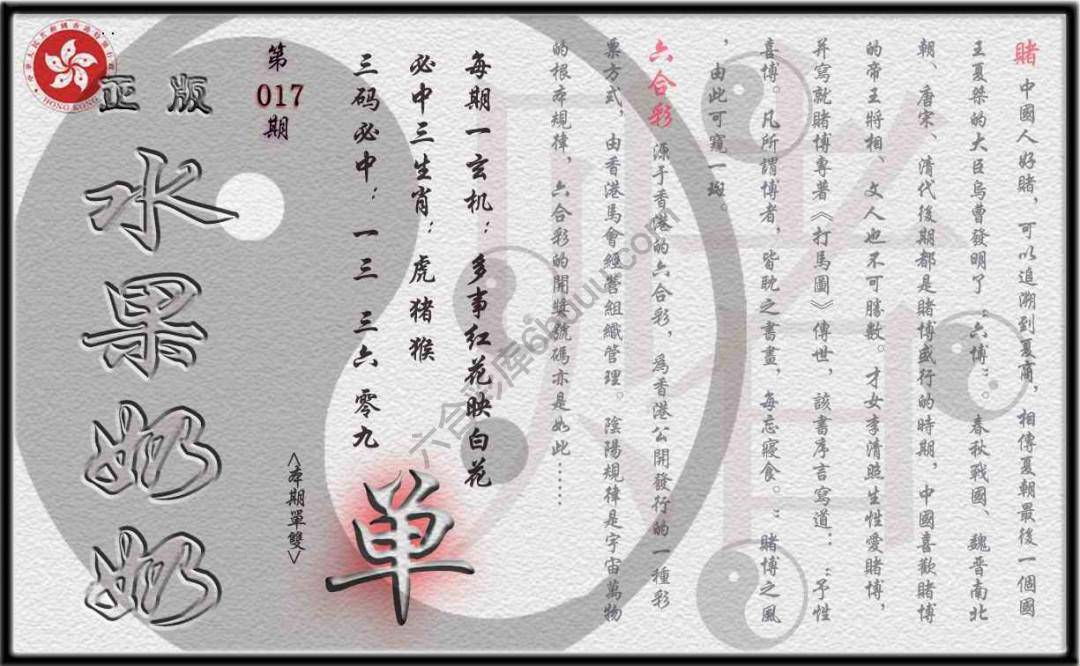 賭 中國人好賭，可以追溯到夏商，相傳夏朝最後一個國
王夏桀的大臣烏曹發明了“六博”。春秋戰國、魏晋南北
朝、唐宋、清代後期都是賭博盛行的時期，中國喜歡賭博
的帝王將相、文人也不可勝數。才女李清照生性愛賭博，
并寫就賭博專著《打馬圖》傳世，該書序言寫道：“予性
喜博。凡所謂博者，皆耽之書晝，每忘寢食。”賭博之風
，由此可窺一斑。
六合彩 源于香港的六合彩，為香港公開發行的一種彩
票方式，由香港馬會經營組織管理。陰陽規律是宇宙萬物
的根本規律，六合彩的開獎號碼亦是如此……
每期一玄机：多事红花映白花
必中三生肖：虎猪猴
三码必中：一三 三六 零九
第
017
期
<本期單雙>
单
正版
水果奶奶
HONG KONG
六合彩库66uuu.com